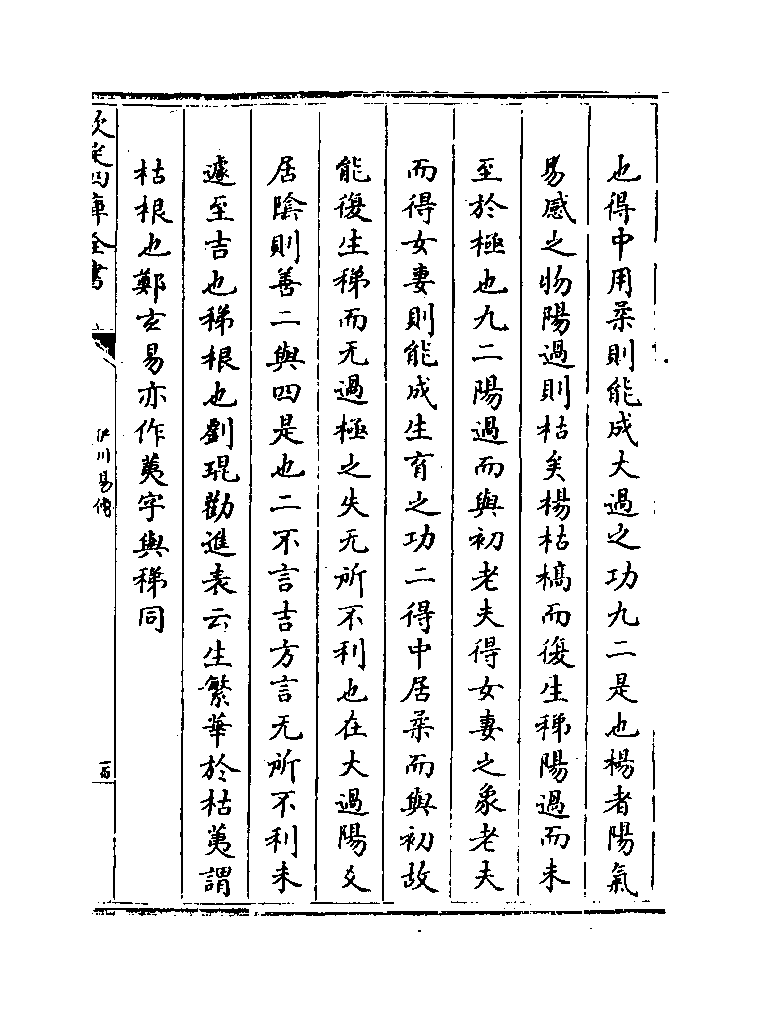 也得中用柔則能成大過之功九二是也楊者陽氣
易感之物陽過則枯矣楊枯槁而復生稊陽過而未
至於極也九二陽過而與初老夫得女妻之象老夫
而得女妻則能成生育之功二得中居柔而與初故
能復生稊而无過極之失无所不利也在大過陽爻
居隂則善二與四是也二不言吉方言无所不利未
遽至吉也稊根也劉琨勸進表云生繁華於枯荑謂
枯根也鄭玄易亦作荑字與稊同
欽定四庫全書
伊川易傳